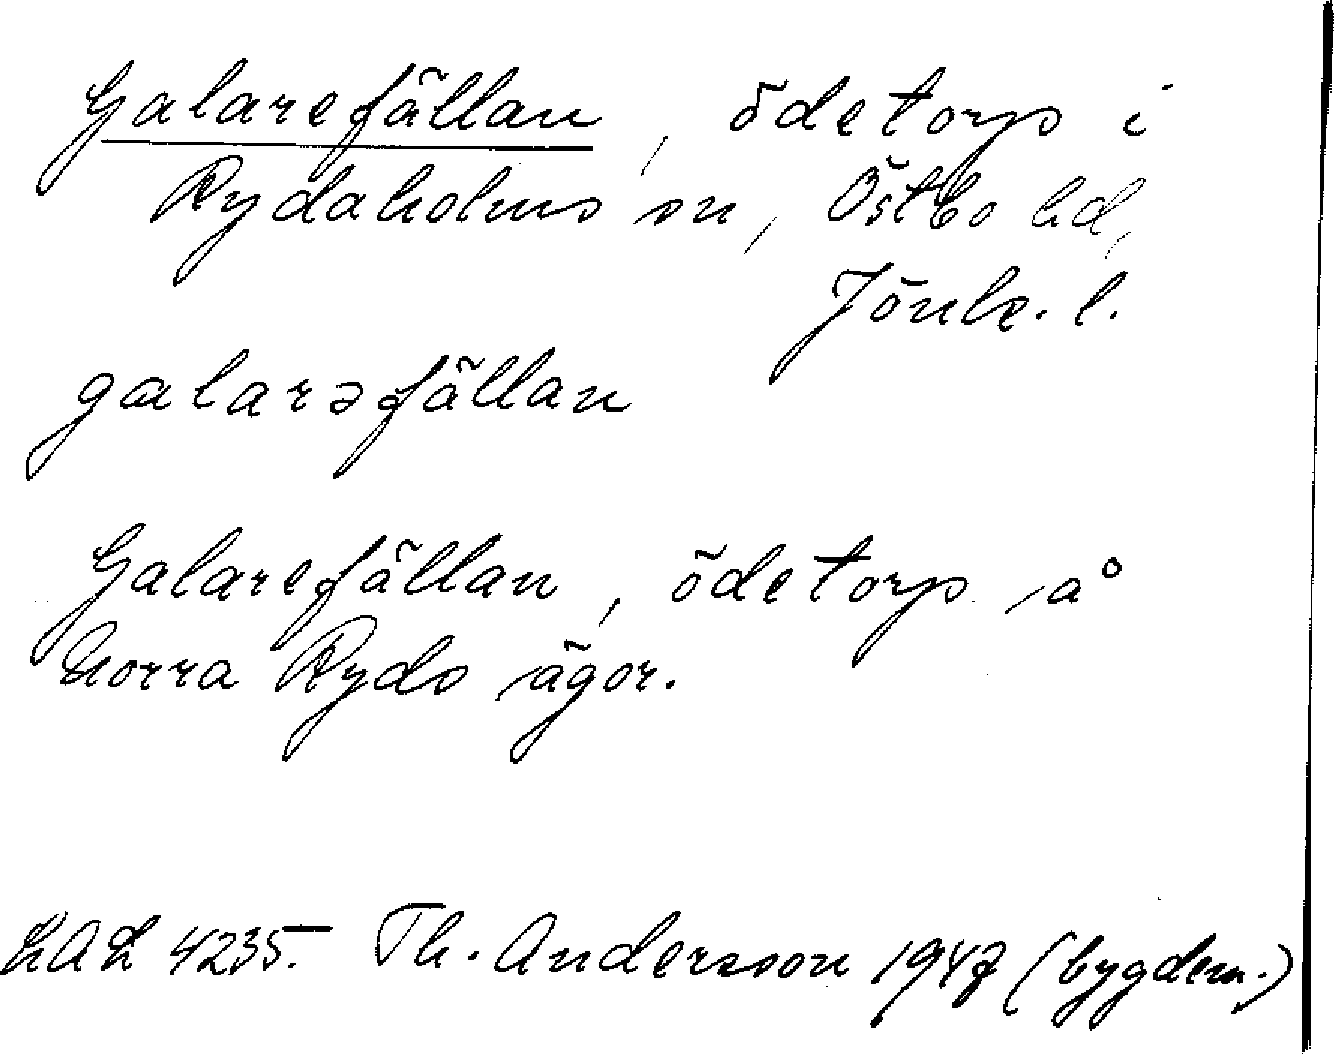 Galarefällan, ödetorp i
Rydaholms sn, Östbo hd,
Jönk. l.
galarəfällan
Galarefällan, ödetorp på
Norra Ryds ägor.
LAL 4235. Th. Andersson 1947 (bygdem.)